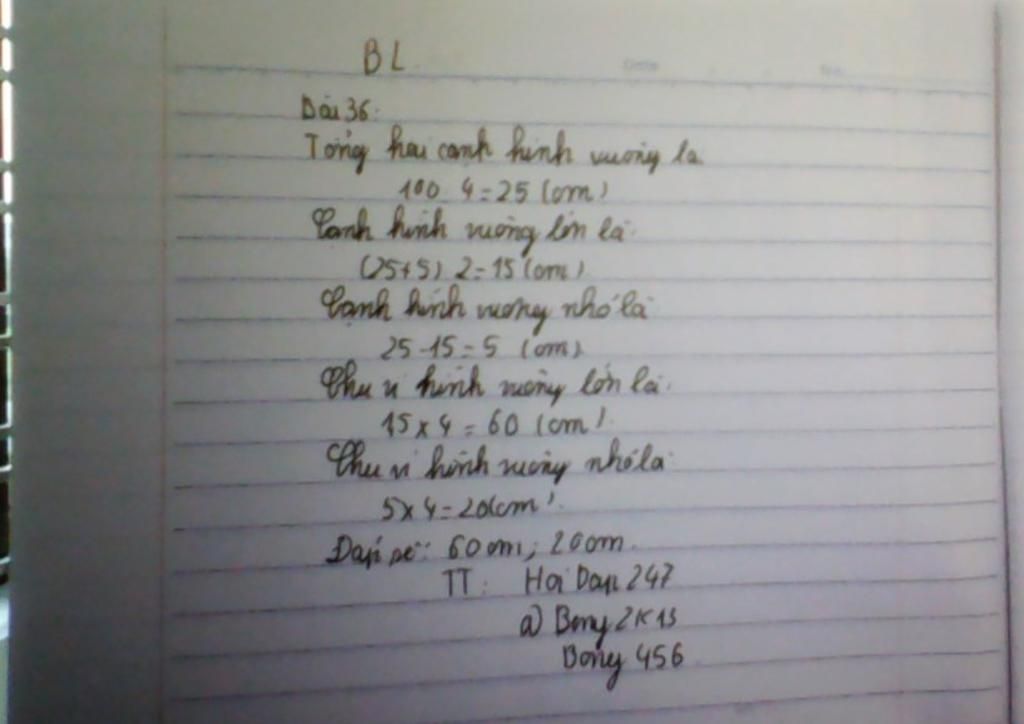 BL
Bài 36:
Tổng hai cạnh hình vuông là
100 : 4 = 25 (cm)
Cạnh hình vuông lớn là:
(25+5) : 2 = 15 (cm)
Cạnh hình vuông nhỏ là
25 - 15 = 5 (cm)
Chu vi hình vuông lớn là:
15 x 4 = 60 (cm)
Chu vi hình vuông nhỏ là:
5 x 4 = 20(cm)
Đáp số: 60cm; 20cm.
TT: Hoi Dap 247
a) Bong 2K13
Bong 456